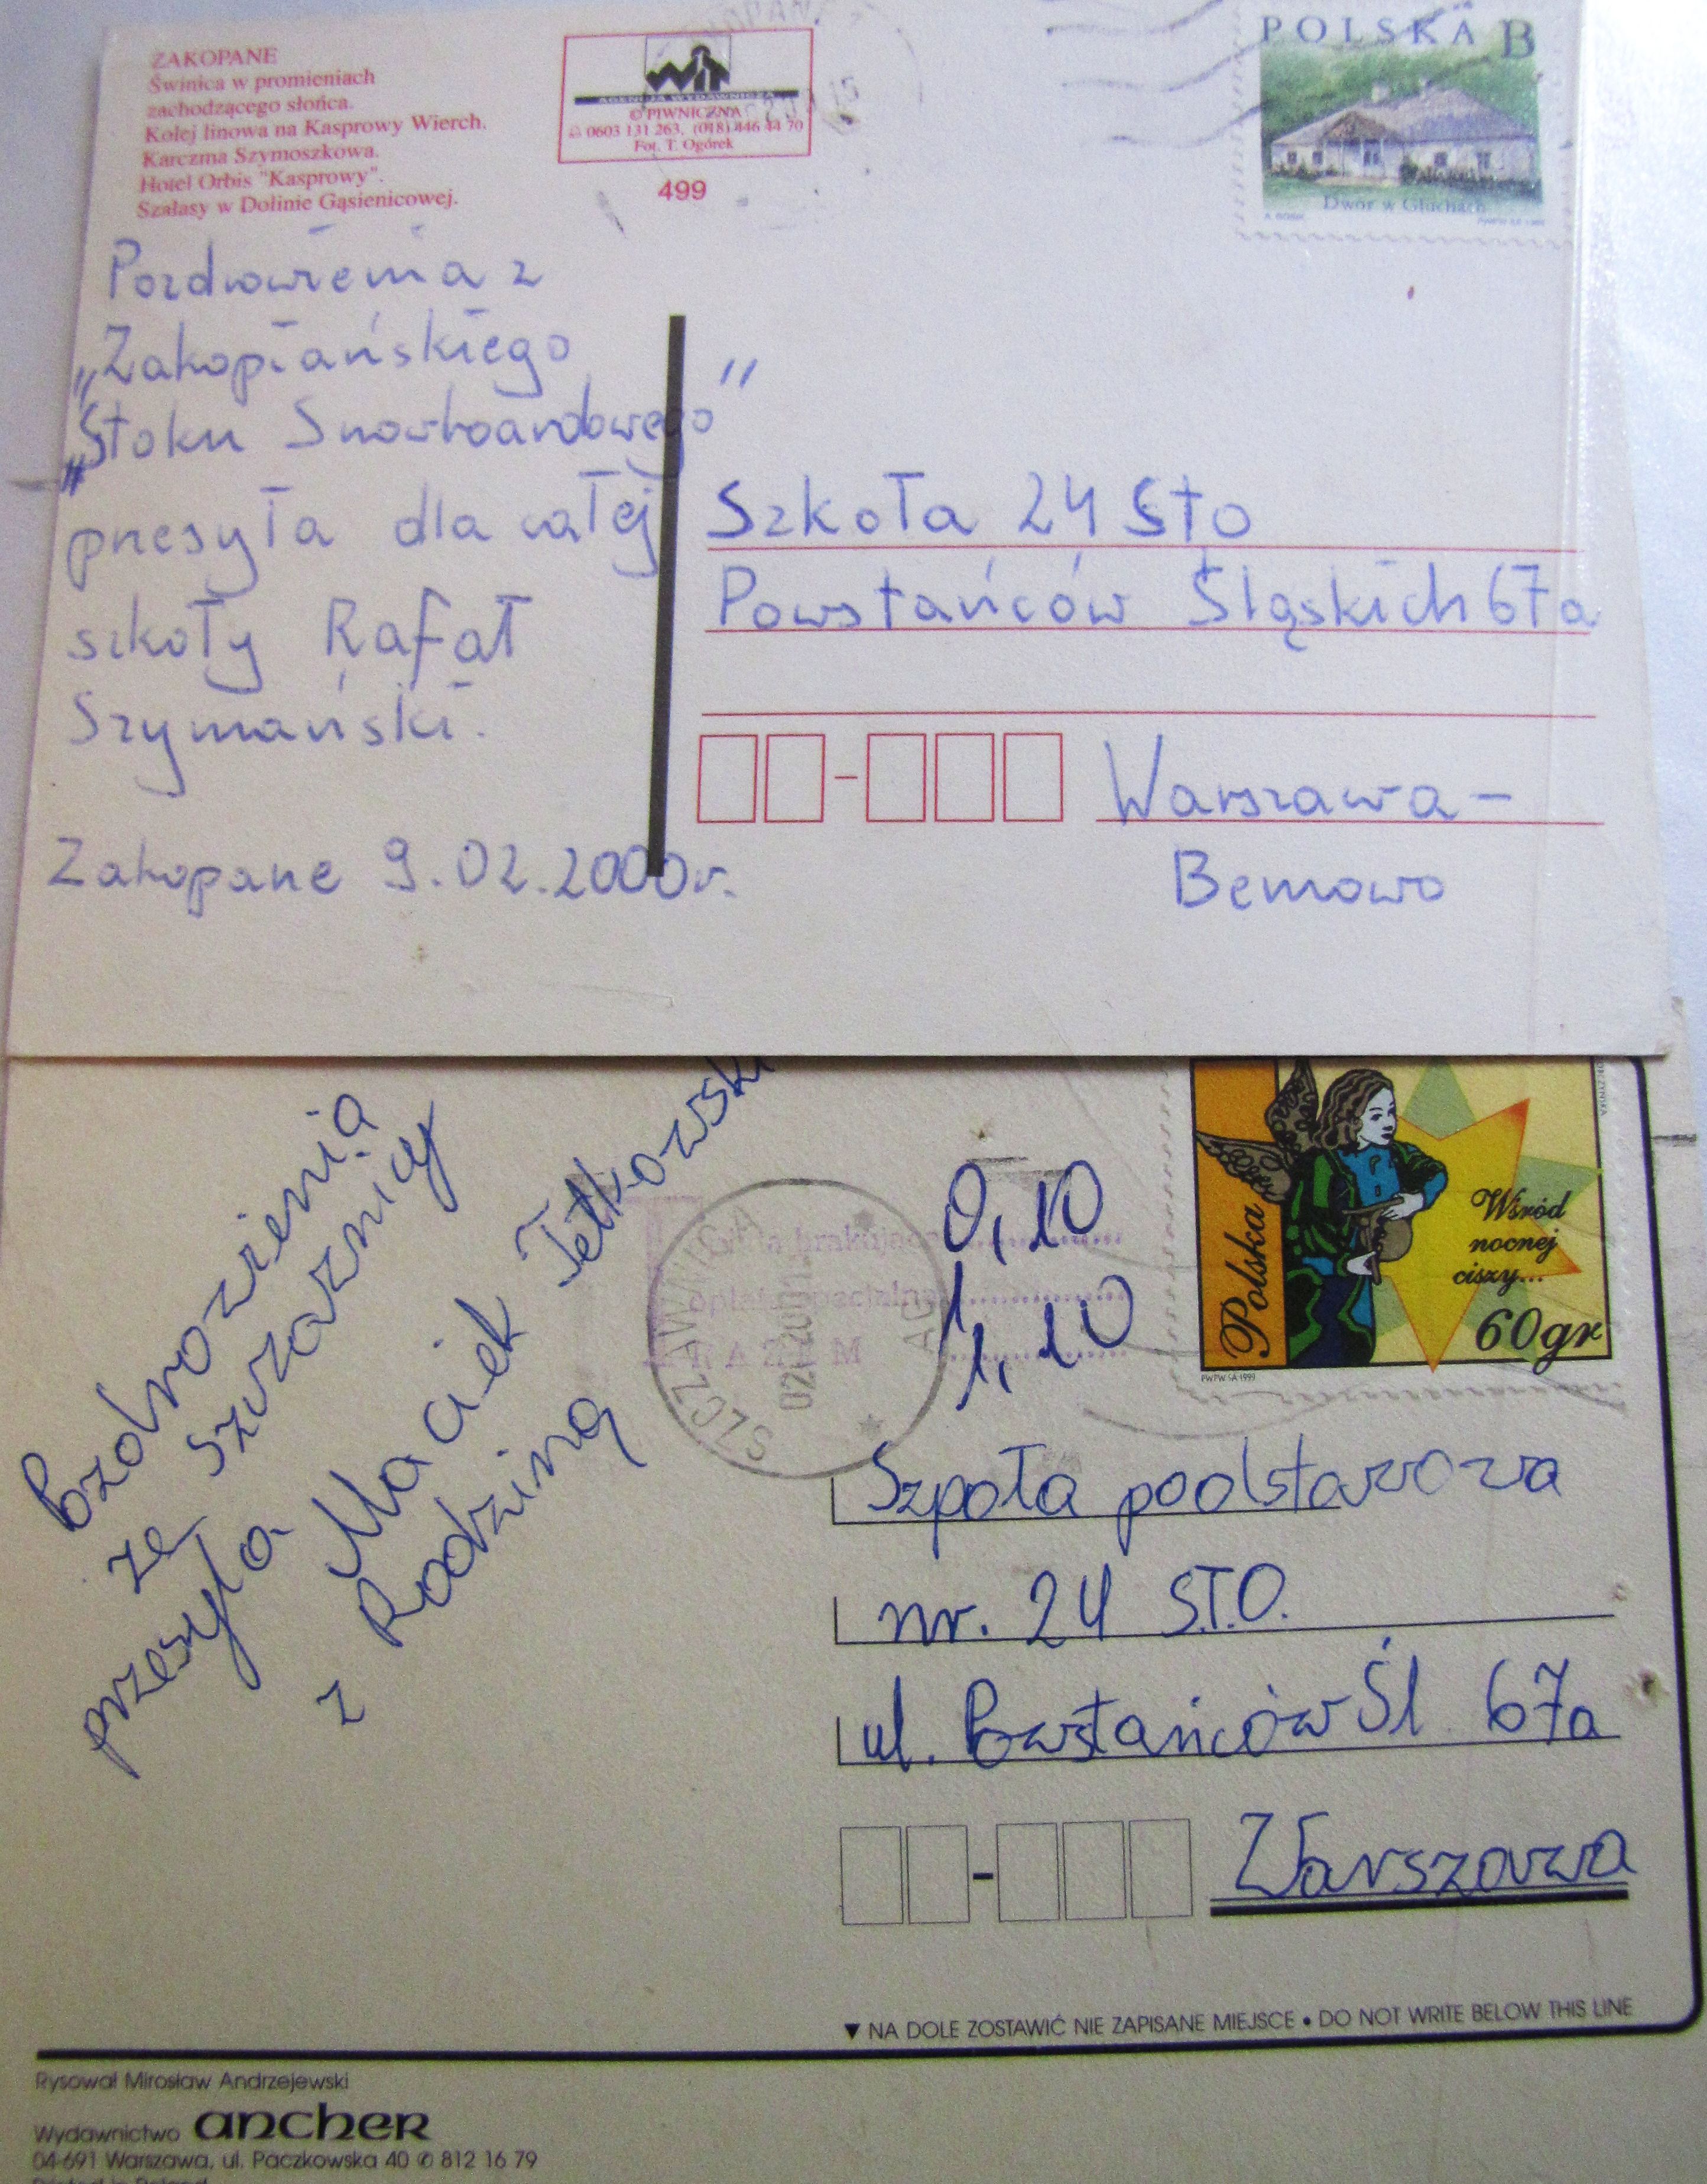 ZAKOPANE
Świnica w promieniach
zachodzącego słońca.
Kolej linowa na Kasprowy Wierch.
Karczma Szymoszkowa.
Hotel Orbis "Kasprowy".
Szałasy w Dolinie Gąsienicowej.
WiT
AGENCJA WYDAWNICZA
© PIWNICZNA
0603 131 263, (018) 446 44 70
Fot. T. Ogórek
499
POLSKA B
Dwór w Głuchach
Pozdrowienia z
„Zakopiańskiego
„Stoku Snowboardowego”
przesyła dla całej
szkoły Rafał
Szymański.
Zakopane 9.02.2000r.
Szkoła 24 Sto
Powstańców Śląskich 67a
Warszawa-
Bemowo
Pozdrowienia
ze Szczawnicy
przesyła
Maciek
z Rodziną
SZCZAWNICA
0,10
1,10
Polska
Wśród
nocnej
ciszy...
60gr
PWPW SA 1999
Szpoła podstawowa
nr. 24 S.T.O.
ul. Powstańców Śl 67a
Warszawa
▼ NA DOLE ZOSTAWIĆ NIE ZAPISANE MIEJSCE • DO NOT WRITE BELOW THIS LINE
Rysował Mirosław Andrzejewski
Wydawnictwo ancher
04-691 Warszawa, ul. Paczkowska 40 ✆ 812 16 79
Printed in Poland